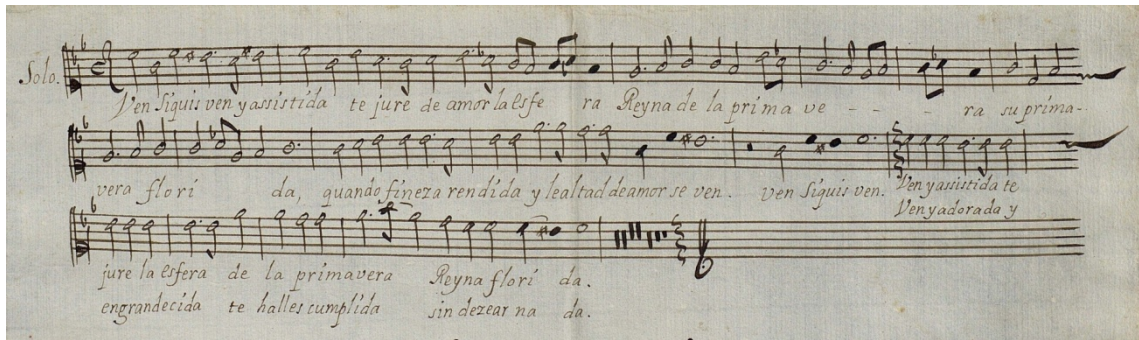 Solo.
Ven Siquis ven y assistida te jure de amor la esfe ra Reyna de la prima ve - - - ra su prima-
vera flori da, quando fineza rendida y lealtad de amor se ven. ven Siquis ven. Ven y assistida te
Ven y adorada y
jure la esfera de la primavera Reyna flori da.
engrandecida te halles cumplida sin dezear na da.